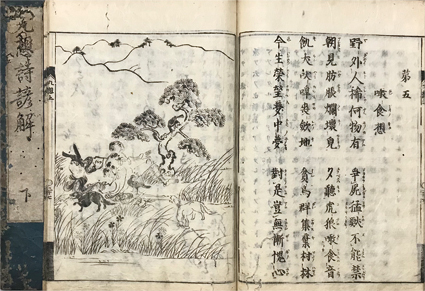 第五
噉食想
野外人稀何物有 爭屍猛獸不能禁
朝見肪脹爛壞皃 夕聽虎狼噉食音
飢犬吠喪斂地 貪烏群集棄捐林
今生榮夢中夢 對是豈無慚愧心
九想詩諺解 下